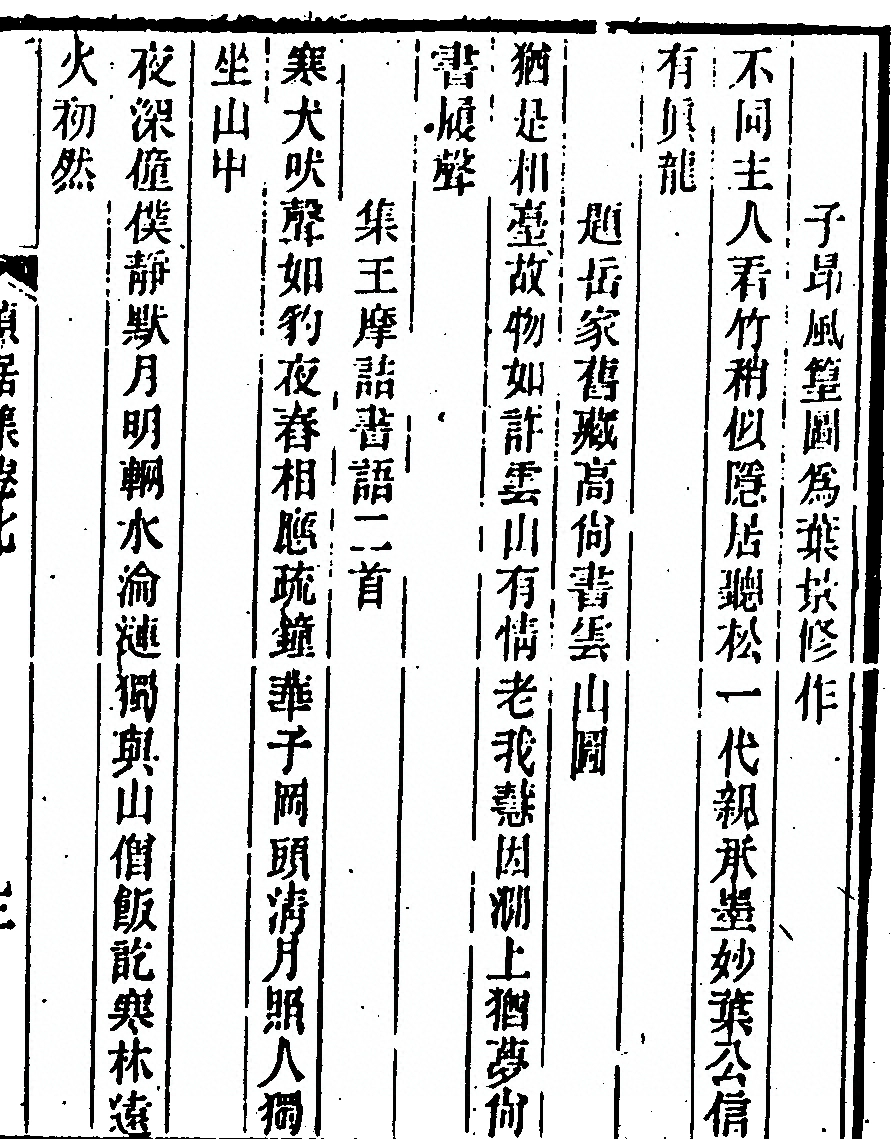 子昂風篁圖為葉敬修作
不同主人看竹稍似隱居聽松一代親承墨妙葉公信
有真龍
題岳家舊藏高尙書雲山圖
猶是相臺故物如詐雲山有情老我慧因澗上猶夢尙
書履聲
集王摩詰書語二首
寒犬吠聲如豹夜舂相應疏鐘華子岡頭清月照人獨
坐山中
夜深僮僕靜默月明輞水淪漣獨與山僧飯訖寒林遠
火初然
貞居集卷七
三